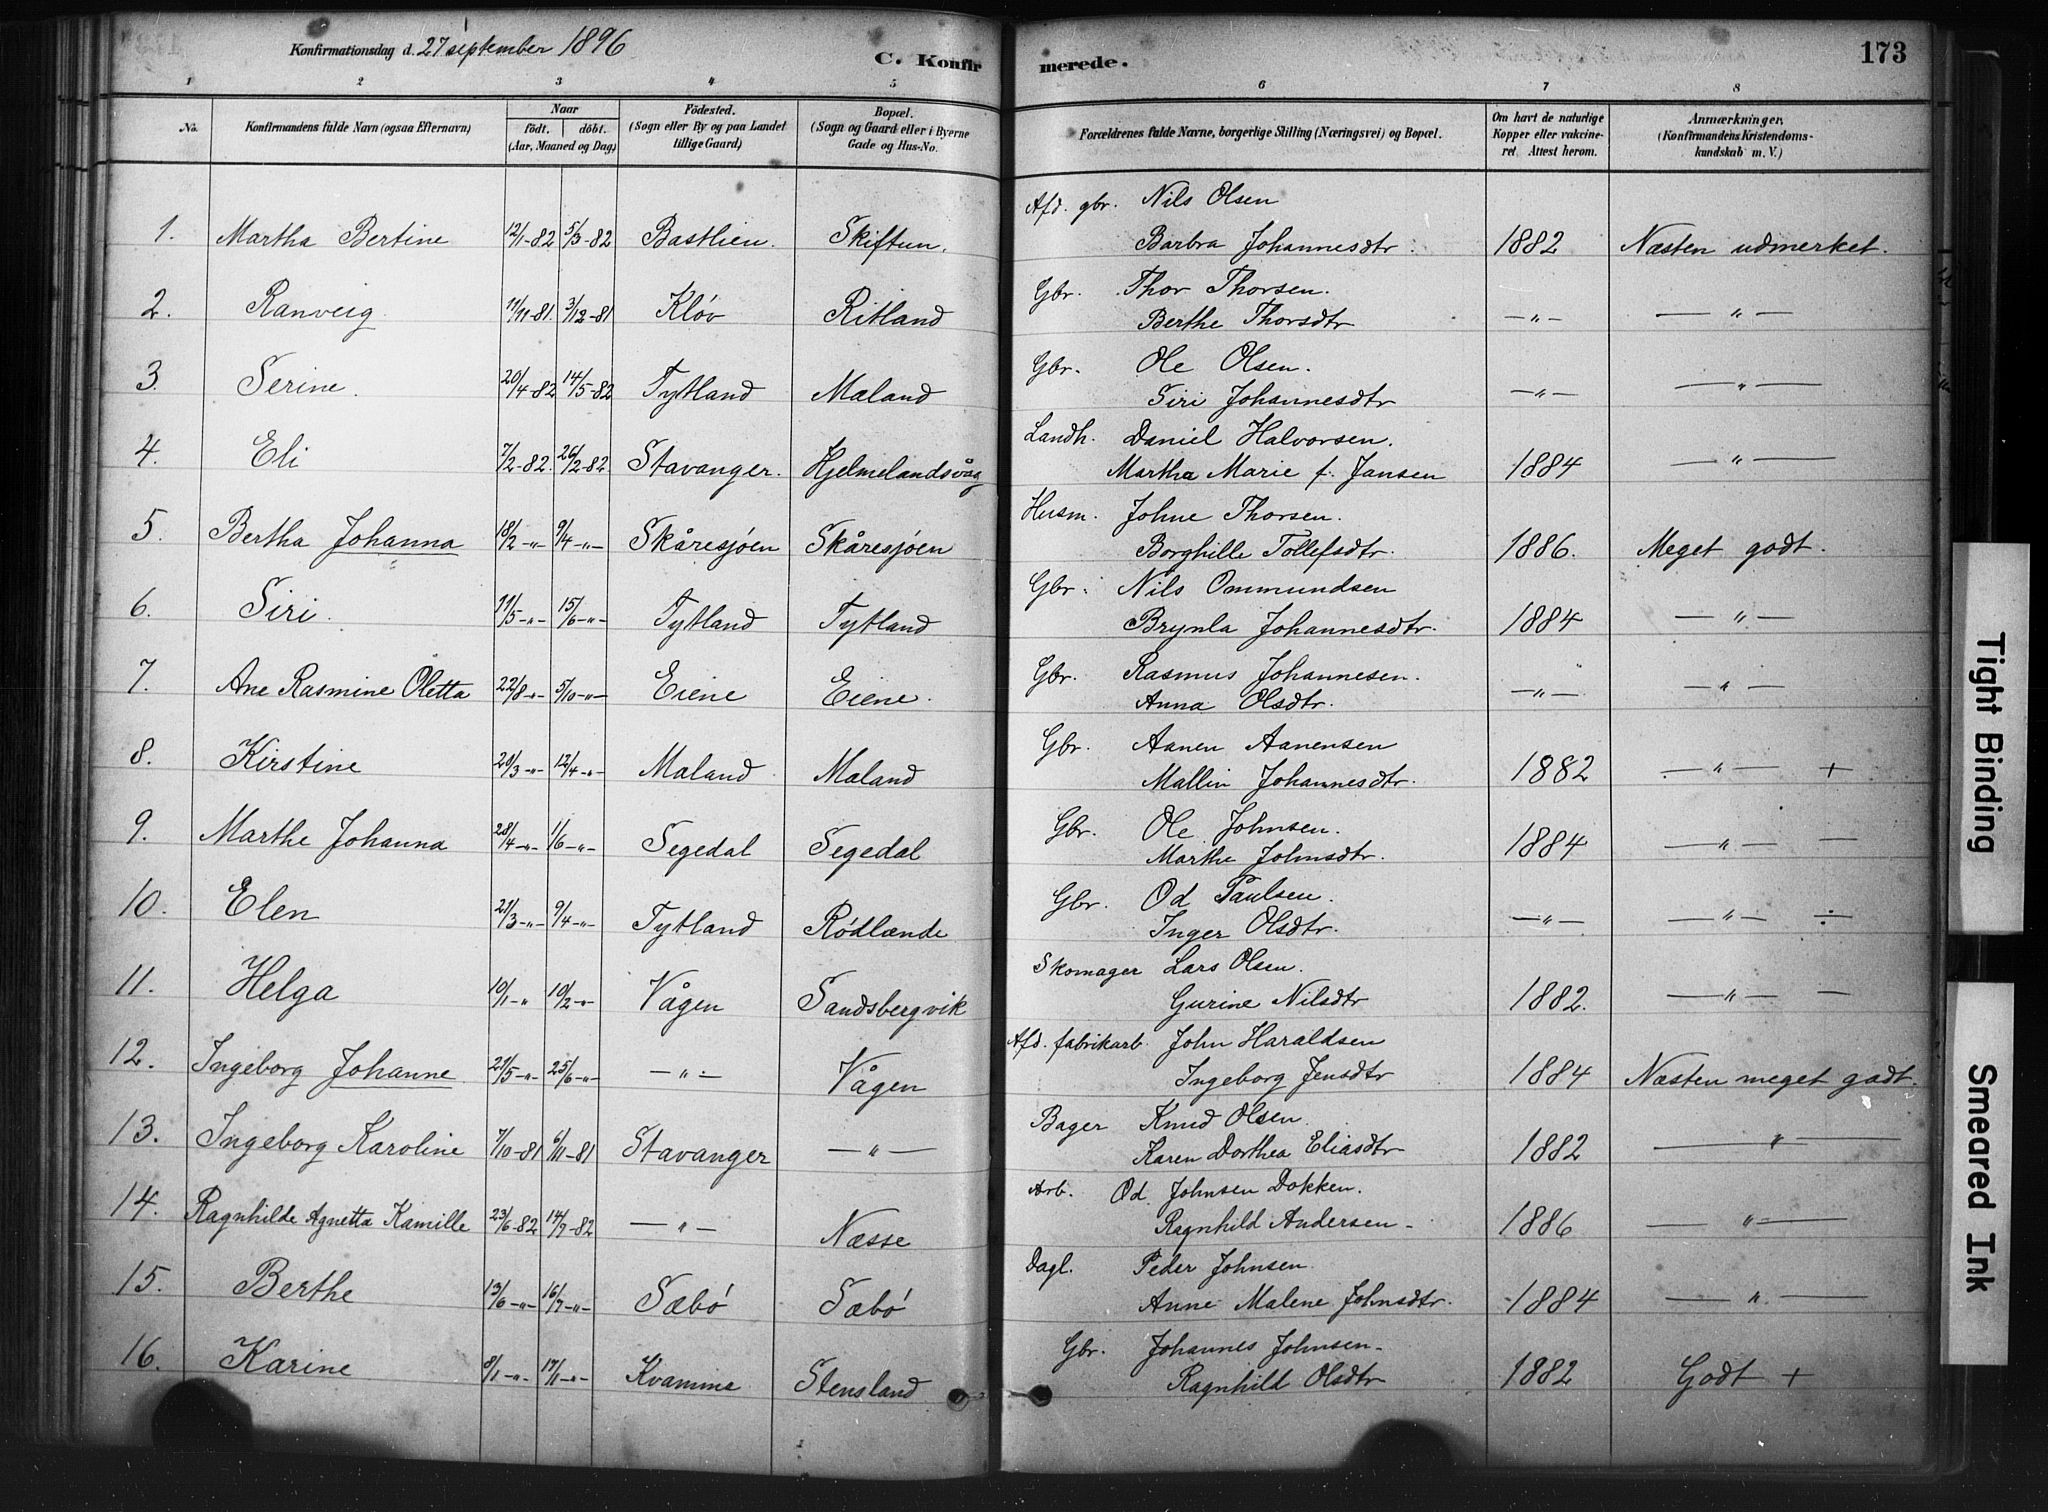 Konfirmationsdag d. 27 september 1896
C. Konfirmerede.
173
1 2 3 4 5 6 7 8
No.
Konfirmandens fulde Navn (ogsaa Efternavn)
Naar
födt. döbt.
(Aar, Maaned og Dag)
Födested.
(Sogn eller By og paa Landet
tillige Gaard)
Bopæl.
(Sogn og Gaard eller i Byerne
Gade og Hus-No.
Forældrenes fulde Navne, borgerlige Stilling (Næringsvei) og Bopæl.
Om havt de naturlige
Kopper eller vakcine-
ret. Attest herom.
Anmærkninger,
(Konfirmandens Kristendoms-
kundskab m. V.)
Afd. gbr. Nils Olsen
1. Martha Bertine 12/1-82 5/3-82 Basthien. Skiftun. Barbra Johannesdtr. 1882 Næsten udmerket.
Gbr. Thor Thorsen.
2. Ranveig 11/11-81. 3/12-81 Kløv Ritland Berthe Thorsdtr —„— —„—
Gbr. Ole Olsen.
3. Serine. 20/4-82 14/5-82 Tytland Maland Siri Johannesdtr —„— —„—
Landh. Daniel Halvorsen.
4. Eli 7/2-82. 26/2-82 Stavanger. Hjelmelandsvåg Martha Marie f. Jansen 1884 —„—
Husm. Johne Thorsen.
5. Bertha Johanna 18/2 -„- 9/4 -„- Skåresjøen Skåresjøen Borghille Tollefsdtr. 1886. Meget godt.
Gbr. Nils Ommundsen
6. Siri. 11/5 -„- 15/6 -„- Tytland Tytland Brynla Johannesdtr. 1884 —„—
Gbr. Rasmus Johannesen.
7. Ane Rasmine Oletta 22/8 -„- 5/10 -„- Eiene Eiene. Anna Olsdtr. —„— —„—
Gbr. Aanen Aanensen
8. Kirstine 20/3 -„- 12/4 -„- Maland Maland Mallin Johannesdtr. 1882 —„— +
Gbr. Ole Johnsen.
9. Marthe Johanna 28/4 -„- 1/6 -„- Segedal Segedal Marthe Johnsdtr. 1884 —„— —
Gbr. Od Paulsen.
10. Elen 21/3 -„- 9/4 -„- Tytland Rødlænde Inger Olsdtr. —„— —„— ÷
Skomager Lars Olsen.
11. Helga 10/1 -„ 10/2 -„- Vågen Sandsbergvik Gurine Nilsdtr 1882. —„— —
Afd. fabrikarb. John Haraldsen
12. Ingeborg Johanne 21/5 -„- 25/6 -„- —„— Vågen Ingeborg Jensdtr 1884 Næsten meget godt.
Bager Knud Olsen
13. Ingeborg Karoline 7/10-81 6/11-81 Stavanger —„— Karen Dorthea Eliasdtr 1882 —„—
Arb. Od Johnsen Dokken.
14. Ragnhilde Agnetta Kamille 23/6-82 14/7-82 —„— Næsse Ragnhild Andersen - 1886 —„—
Dagl. Peder Johnsen.
15. Berthe 13/6 -„- 16/7 -„- Sæbø Sæbø Anne Malene Johnsdtr. 1884 —„—
Gbr. Johannes Johnsen-
16. Karine 8/1 -„- 17/1 -„- Kvamme Stensland Ragnhild Olsdtr 1882 Godt +
Tight Binding
Smeared Ink